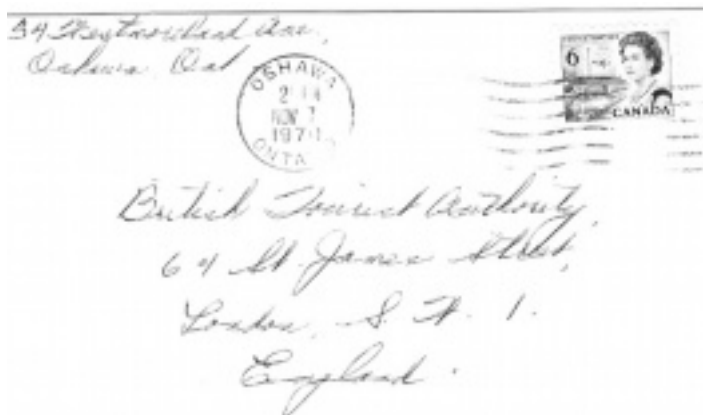 Ave,
Oshawa Ont
OSHAWA
NOV 7
197
ONTA
6
CANADA
British Tourist Authority,
64 St. James Street,
London, S. W. 1.
England.